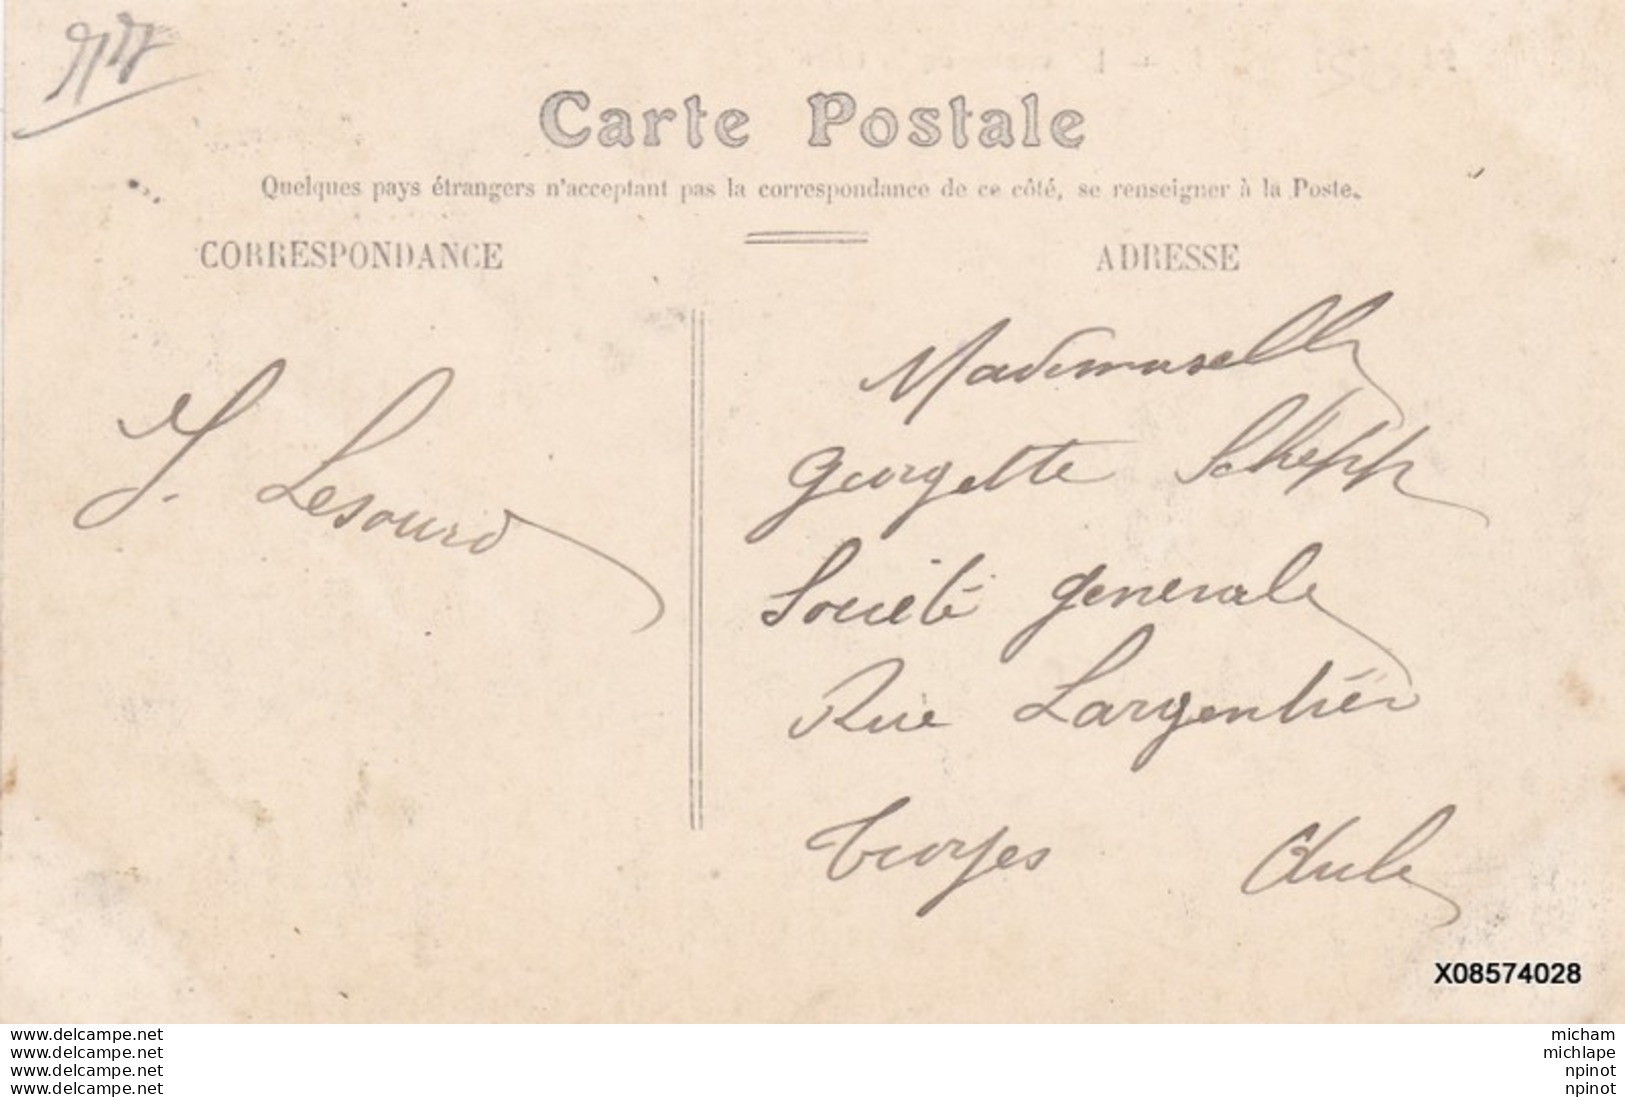 Carte Postale
Quelques pays étrangers n'acceptent pas la correspondance de ce côté, se renseigner à la Poste.
CORRESPONDANCE
ADRESSE
J. Lesourd
Mademoiselle
Georgette Schepp
Société générale
Rue Largentier
Troyes Aube
X08574028
www.delcampe.net
www.delcampe.net
www.delcampe.net
www.delcampe.net
micham
michlape
npinot
npinot